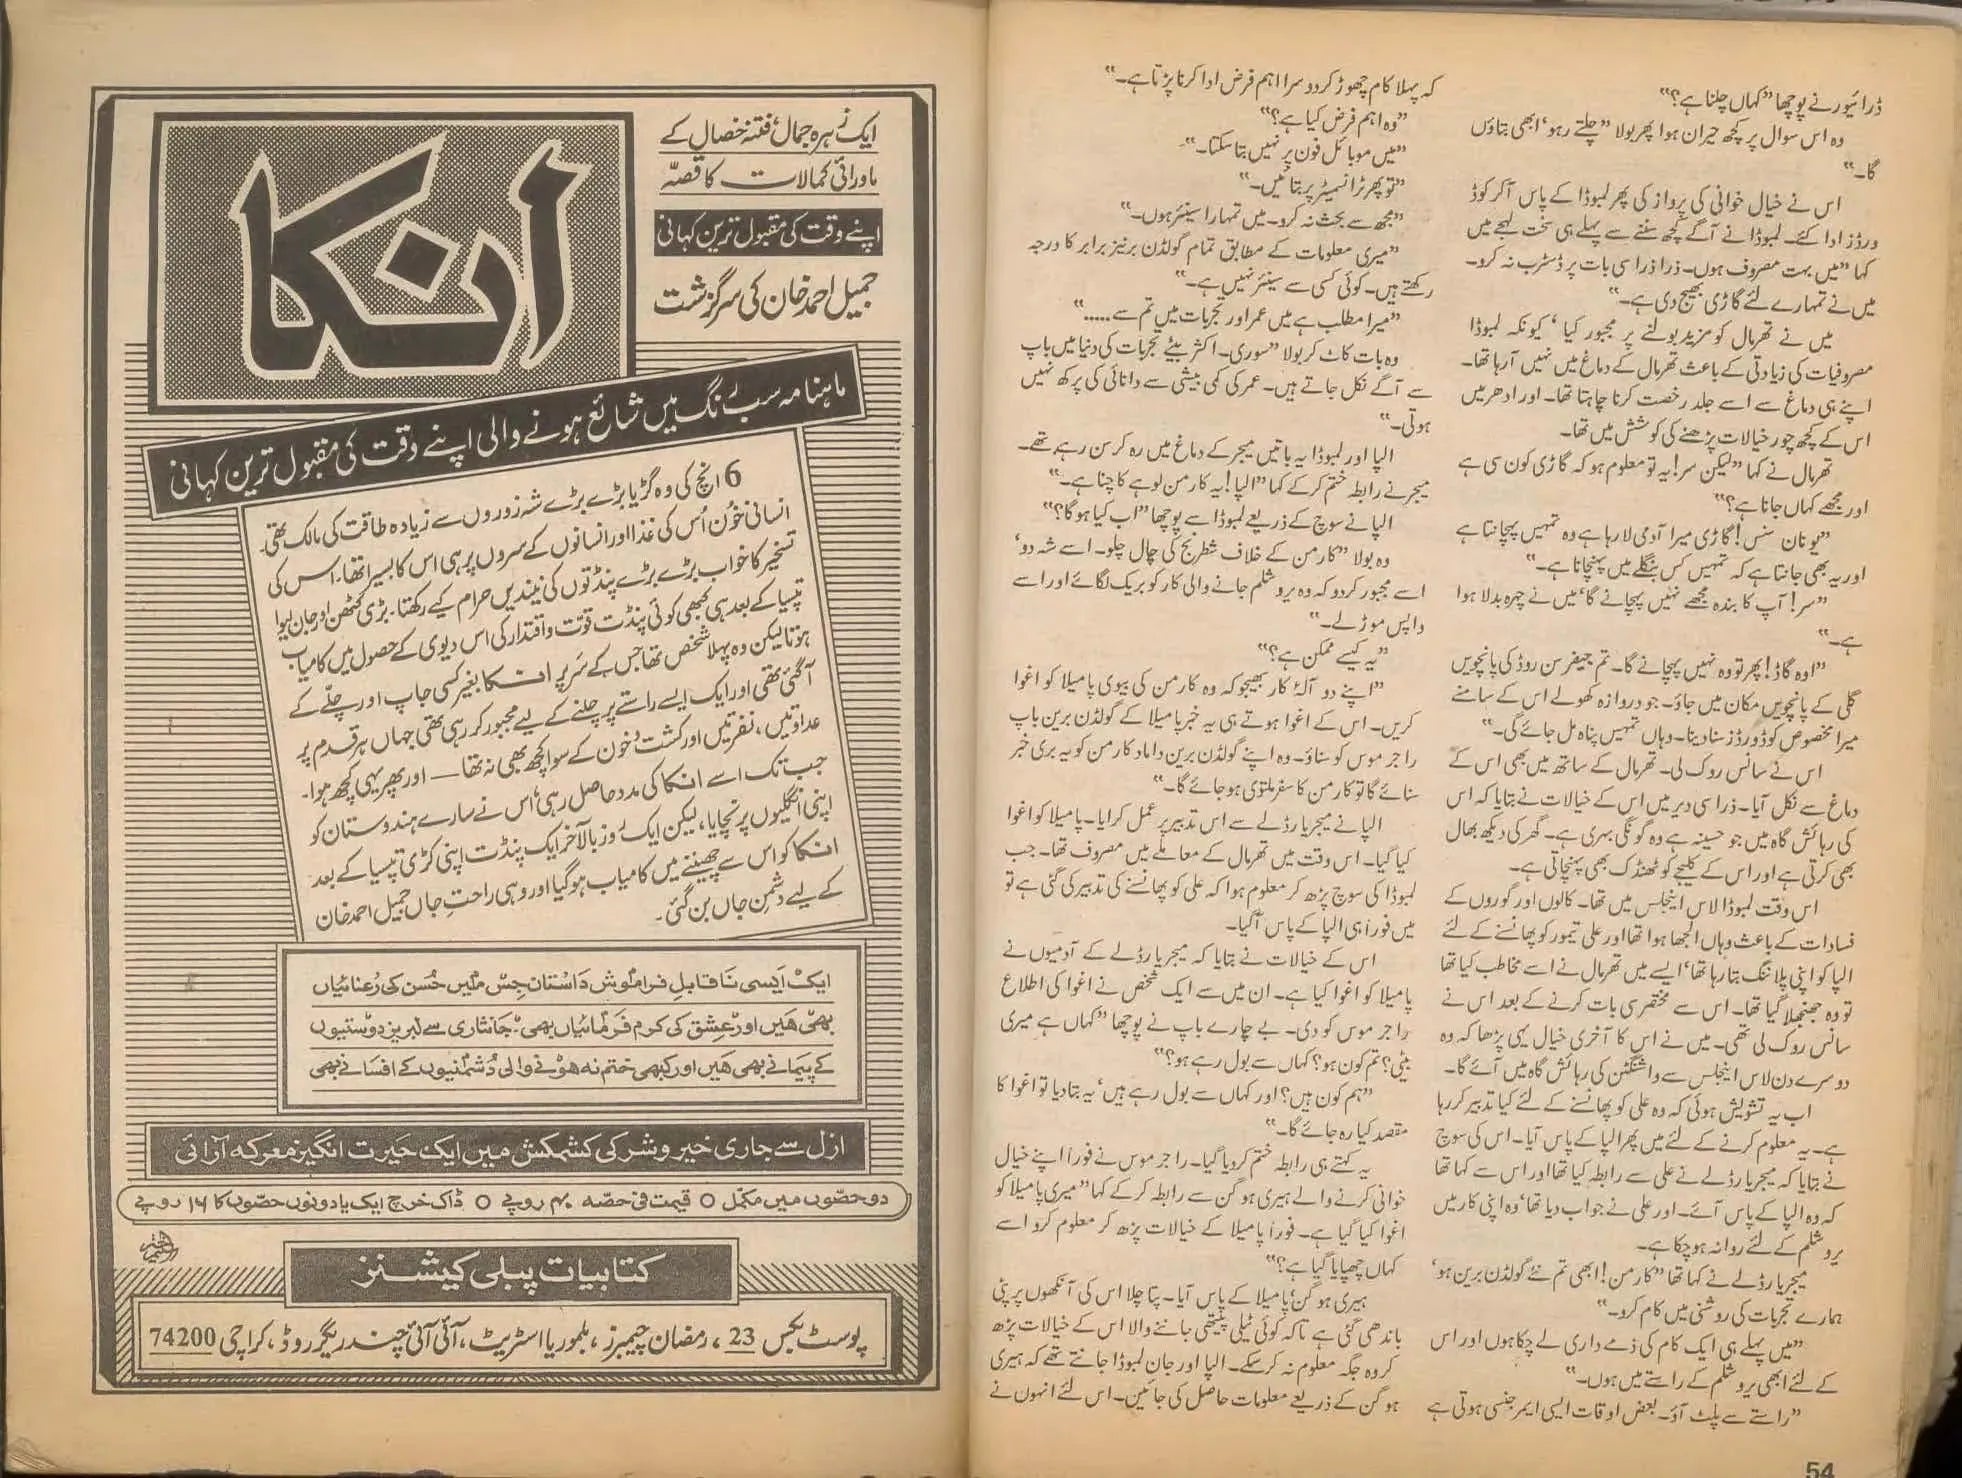 ڈرائیور نے پوچھا ”کہاں چلنا ہے؟“
وہ اس سوال پر کچھ حیران ہوا پھر بولا ”چلتے رہو‘ ابھی بتاؤں
گا۔“
اس نے خیال خوانی کی پرواز کی پھر لمبوڈا کے پاس آکر کوڈ
ورڈز ادا کئے۔ لمبوڈا نے آگے کچھ سننے سے پہلے ہی سخت لہجے میں
کہا ”میں بہت مصروف ہوں۔ ذرا ذرا سی بات پر ڈسٹرب نہ کرو۔
میں نے تمہارے لئے گاڑی بھیج دی ہے۔“
میں نے تھرمال کو مزید بولنے پر مجبور کیا ‘ کیونکہ لمبوڈا
مصروفیات کی زیادتی کے باعث تھرمال کے دماغ میں نہیں آرہا تھا۔
اپنے ہی دماغ سے اسے جلد رخصت کرنا چاہتا تھا۔ اور ادھر میں
اس کے کچھ چور خیالات پڑھنے کی کوشش میں تھا۔
تھرمال نے کہا ”لیکن سر! یہ تو معلوم ہو کہ گاڑی کون سی ہے
اور مجھے کہاں جانا ہے؟“
”یو نان سنس! گاڑی میرا آدمی لا رہا ہے وہ تمہیں پہچانتا ہے
اور یہ بھی جانتا ہے کہ تمہیں کس بنگلے میں پہنچانا ہے۔“
”سر! آپ کا بندہ مجھے نہیں پہچانے گا‘ میں نے چہرہ بدلا ہوا
ہے۔“
”اوہ گاڈ! پھر تو وہ نہیں پہچانے گا۔ تم جیفرسن روڈ کی پانچویں
گلی کے پانچویں مکان میں جاؤ۔ جو دروازہ کھولے اس کے سامنے
میرا مخصوص کوڈ ورڈز سنا دینا۔ وہاں تمہیں پناہ مل جائے گی۔“
اس نے سانس روک لی۔ تھرمال کے ساتھ میں بھی اس کے
دماغ سے نکل آیا۔ ذرا سی دیر میں اس کے خیالات نے بتایا کہ اس
کی رہائش گاہ میں جو حسینہ ہے وہ گونگی بہری ہے۔ گھر کی دیکھ بھال
بھی کرتی ہے اور اس کے کلیجے کو ٹھنڈک بھی پہنچاتی ہے۔
اس وقت لمبوڈا لاس اینجلس میں تھا۔ کالوں اور گوروں کے
فسادات کے باعث وہاں الجھا ہوا تھا اور علی تیمور کو پھانسنے کے لئے
الپا کو اپنی پلاننگ بتا رہا تھا‘ ایسے میں تھرمال نے اسے مخاطب کیا تھا
تو وہ جھنجھلا گیا تھا۔ اس سے مختصر سی بات کرنے کے بعد اس نے
سانس روک لی تھی۔ میں نے اس کا آخری خیال یہی پڑھا کہ وہ
دوسرے دن لاس اینجلس سے واشنگٹن کی رہائش گاہ میں آئے گا۔
اب یہ تشویش ہوئی کہ وہ علی کو پھانسنے کے لئے کیا تدبیر کر رہا
ہے۔ یہ معلوم کرنے کے لئے میں پھر الپا کے پاس آیا۔ اس کی سوچ
نے بتایا کہ میجر یارڈلے نے علی سے رابطہ کیا تھا اور اس سے کہا تھا
کہ وہ الپا کے پاس آئے۔ اور علی نے جواب دیا تھا‘ وہ اپنی کار میں
یروشلم کے لئے روانہ ہوچکا ہے۔
میجر یارڈلے نے کہا تھا ”کارمن! ابھی تم نئے گولڈن برین ہو‘
ہمارے تجربات کی روشنی میں کام کرو۔“
”میں پہلے ہی ایک کام کی ذمے داری لے چکا ہوں اور اس
کے لئے ابھی یروشلم کے راستے میں ہوں۔“
”راستے سے پلٹ آؤ۔ بعض اوقات ایسی ایمرجنسی ہوتی ہے
کہ پہلا کام چھوڑ کر دوسرا اہم فرض ادا کرنا پڑتا ہے۔“
”وہ اہم فرض کیا ہے؟“
”میں موبائل فون پر نہیں بتا سکتا۔“
”تو پھر ٹرانسمیٹر پر بتائیں۔“
”مجھ سے بحث نہ کرو۔ میں تمہارا سینئر ہوں۔“
”میری معلومات کے مطابق تمام گولڈن برینز برابر کا درجہ
رکھتے ہیں۔ کوئی کسی سے سینئر نہیں ہے۔“
”میرا مطلب ہے میں عمر اور تجربات میں تم سے.....“
وہ بات کاٹ کر بولا ”سوری۔ اکثر بیٹے تجربات کی دنیا میں باپ
سے آگے نکل جاتے ہیں۔ عمر کی کمی بیشی سے دانائی کی پرکھ نہیں
ہوتی۔“
الپا اور لمبوڈا یہ باتیں میجر کے دماغ میں رہ کر سن رہے تھے۔
میجر نے رابطہ ختم کر کے کہا ”الپا! یہ کارمن لوہے کا چنا ہے۔“
الپا نے سوچ کے ذریعے لمبوڈا سے پوچھا ”اب کیا ہوگا؟“
وہ بولا ”کارمن کے خلاف شطرنج کی چال چلو۔ اسے شہ دو‘
اسے مجبور کردو کہ وہ یروشلم جانے والی کار کو بریک لگائے اور اسے
واپس موڑ لے۔“
”یہ کیسے ممکن ہے؟“
”اپنے دو آلۂ کار بھیجو کہ وہ کارمن کی بیوی پامیلا کو اغوا
کریں۔ اس کے اغوا ہوتے ہی یہ خبر پامیلا کے گولڈن برین باپ
راجر موس کو سناؤ۔ وہ اپنے گولڈن برین داماد کارمن کو یہ بری خبر
سنائے گا تو کارمن کا سفر ملتوی ہو جائے گا۔“
الپا نے میجر یارڈلے سے اس تدبیر پر عمل کرایا۔ پامیلا کو اغوا
کیا گیا۔ اس وقت میں تھرمال کے معاملے میں مصروف تھا۔ جب
لمبوڈا کی سوچ پڑھ کر معلوم ہوا کہ علی کو پھانسنے کی تدبیر کی گئی ہے تو
میں فوراً ہی الپا کے پاس آگیا۔
اس کے خیالات نے بتایا کہ میجر یارڈلے کے آدمیوں نے
پامیلا کو اغوا کیا ہے۔ ان میں سے ایک شخص نے اغوا کی اطلاع
راجر موس کو دی۔ بے چارے باپ نے پوچھا ”کہاں ہے میری
بیٹی؟ تم کون ہو؟ کہاں سے بول رہے ہو؟“
”ہم کون ہیں؟ اور کہاں سے بول رہے ہیں‘ یہ بتا دیا تو اغوا کا
مقصد کیا رہ جائے گا۔“
یہ کہتے ہی رابطہ ختم کر دیا گیا۔ راجر موس نے فوراً اپنے خیال
خوانی کرنے والے ہیری ہوگن سے رابطہ کر کے کہا ”میری پامیلا کو
اغوا کیا گیا ہے۔ فوراً پامیلا کے خیالات پڑھ کر معلوم کرو اسے
کہاں چھپایا گیا ہے؟“
ہیری ہوگن‘ پامیلا کے پاس آیا۔ پتا چلا اس کی آنکھوں پر پٹی
باندھی گئی ہے تاکہ کوئی ٹیلی پیتھی جاننے والا اس کے خیالات پڑھ
کر وہ جگہ معلوم نہ کرسکے۔ الپا اور جان لمبوڈا جانتے تھے کہ ہیری
ہوگن کے ذریعے معلومات حاصل کی جائیں۔ اس لئے انہوں نے
54
ایک زہرہ جمال، فتنہ خصال کے
ماورائی کمالات کا قصّہ
اپنے وقت کی مقبول ترین کہانی
جمیل احمد خان کی سرگزشت
انکا
ماہنامہ سب رنگ میں شائع ہونے والی اپنے وقت کی مقبول ترین کہانی
6 انچ کی وہ گڑیا بڑے بڑے شہ زوروں سے زیادہ طاقت کی مالک تھی۔
انسانی خون اُس کی غذا اور انسانوں کے سروں پر ہی اس کا بسیرا تھا، اس کی
تسخیر کا خواب بڑے بڑے پنڈتوں کی نیندیں حرام کیے رکھتا۔ بڑی کٹھن اور جان لیوا
تپسیا کے بعد ہی کبھی کوئی پنڈت قوت و اقتدار کی اس دیوی کے حصول میں کامیاب
ہوتا لیکن وہ پہلا شخص تھا جس کے سر پر انکا بغیر کسی جاپ اور چلّے کے
آگئی تھی اور ایک ایسے راستے پر چلنے کے لیے مجبور کر رہی تھی جہاں ہر قدم پر
عداوتیں، نفرتیں اور کشت و خون کے سوا کچھ بھی نہ تھا — اور پھر یہی کچھ ہوا۔
جب تک اسے انکا کی مدد حاصل رہی، اس نے سارے ہندوستان کو
اپنی انگلیوں پر نچایا، لیکن ایک روز بالآخر ایک پنڈت اپنی کڑی تپسیا کے بعد
انکا کو اس سے چھیننے میں کامیاب ہوگیا اور وہی راحتِ جاں جمیل احمد خان
کے لیے دشمنِ جاں بن گئی۔
ایک ایسی ناقابلِ فراموش داستان جس میں حُسن کی رعنائیاں
بھی ہیں اور عشق کی کرم فرمائیاں بھی۔ جانثاری سے لبریز دوستیوں
کے پیمانے بھی ہیں اور کبھی ختم نہ ہونے والی دُشمنیوں کے افسانے بھی
ازل سے جاری خیر و شر کی کشمکش میں ایک حیرت انگیز معرکہ آرائی
دو حصّوں میں مکمل ○ قیمت فی حصہ ۴۰ روپے ○ ڈاک خرچ ایک یا دونوں حصّوں کا ۱۶ روپے
کتابیات پبلی کیشنز
پوسٹ بکس 23 ، رمضان چیمبرز ، بلموریا اسٹریٹ ، آئی آئی چندریگر روڈ ، کراچی 74200